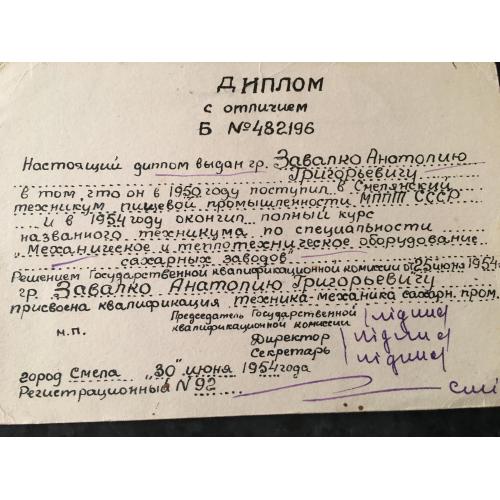 ДИПЛОМ
с отличием
Б №482196
Настоящий диплом выдан гр. Завалко Анатолию
Григорьевичу
в том, что он в 1950 году поступил в Смелянский
техникум пищевой промышленности МППТ СССР
и в 1954 году окончил полный курс
названного техникума по специальности
„Механическое и теплотехническое оборудование
сахарных заводов"
Решением Государственной квалификационной комиссии от 25 июня 1954
гр. Завалко Анатолию Григорьевичу
присвоена квалификация техника-механика сахарн. пром.
Председатель Государственной
квалификационной комиссии /підпис/
м.п.
Директор /підпис/
Секретарь /підпис/
город Смела „30" июня 1954 года
Регистрационный N 92